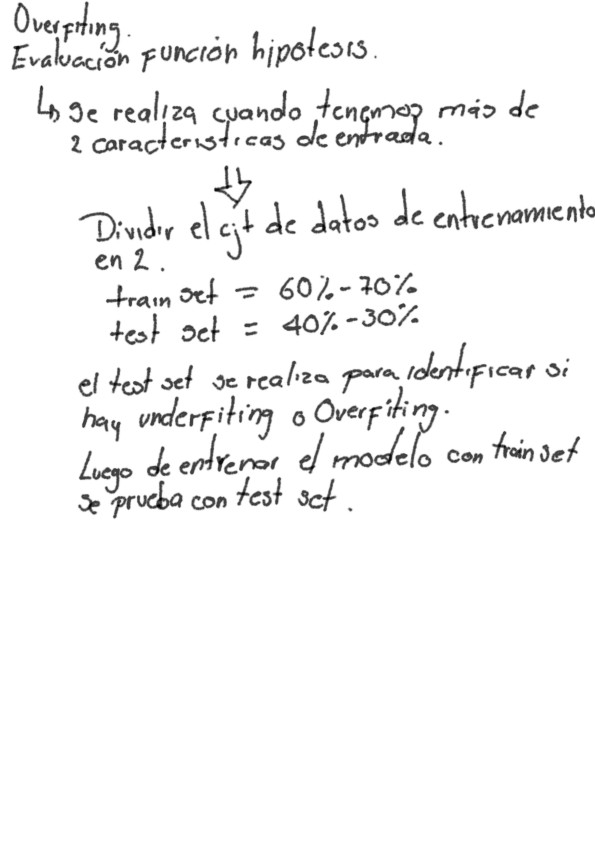 Overfiting.
Evaluación Función hipotesis.
↳ se realiza cuando tenemos más de
2 caracteristicas de entrada.
⇓
Dividir el cjt de datos de entrenamiento
en 2.
train set = 60%-70%
test set = 40%-30%
el test set se realiza para identificar si
hay underfiting o Overfiting.
Luego de entrenar el modelo con train set
se prueba con test set.